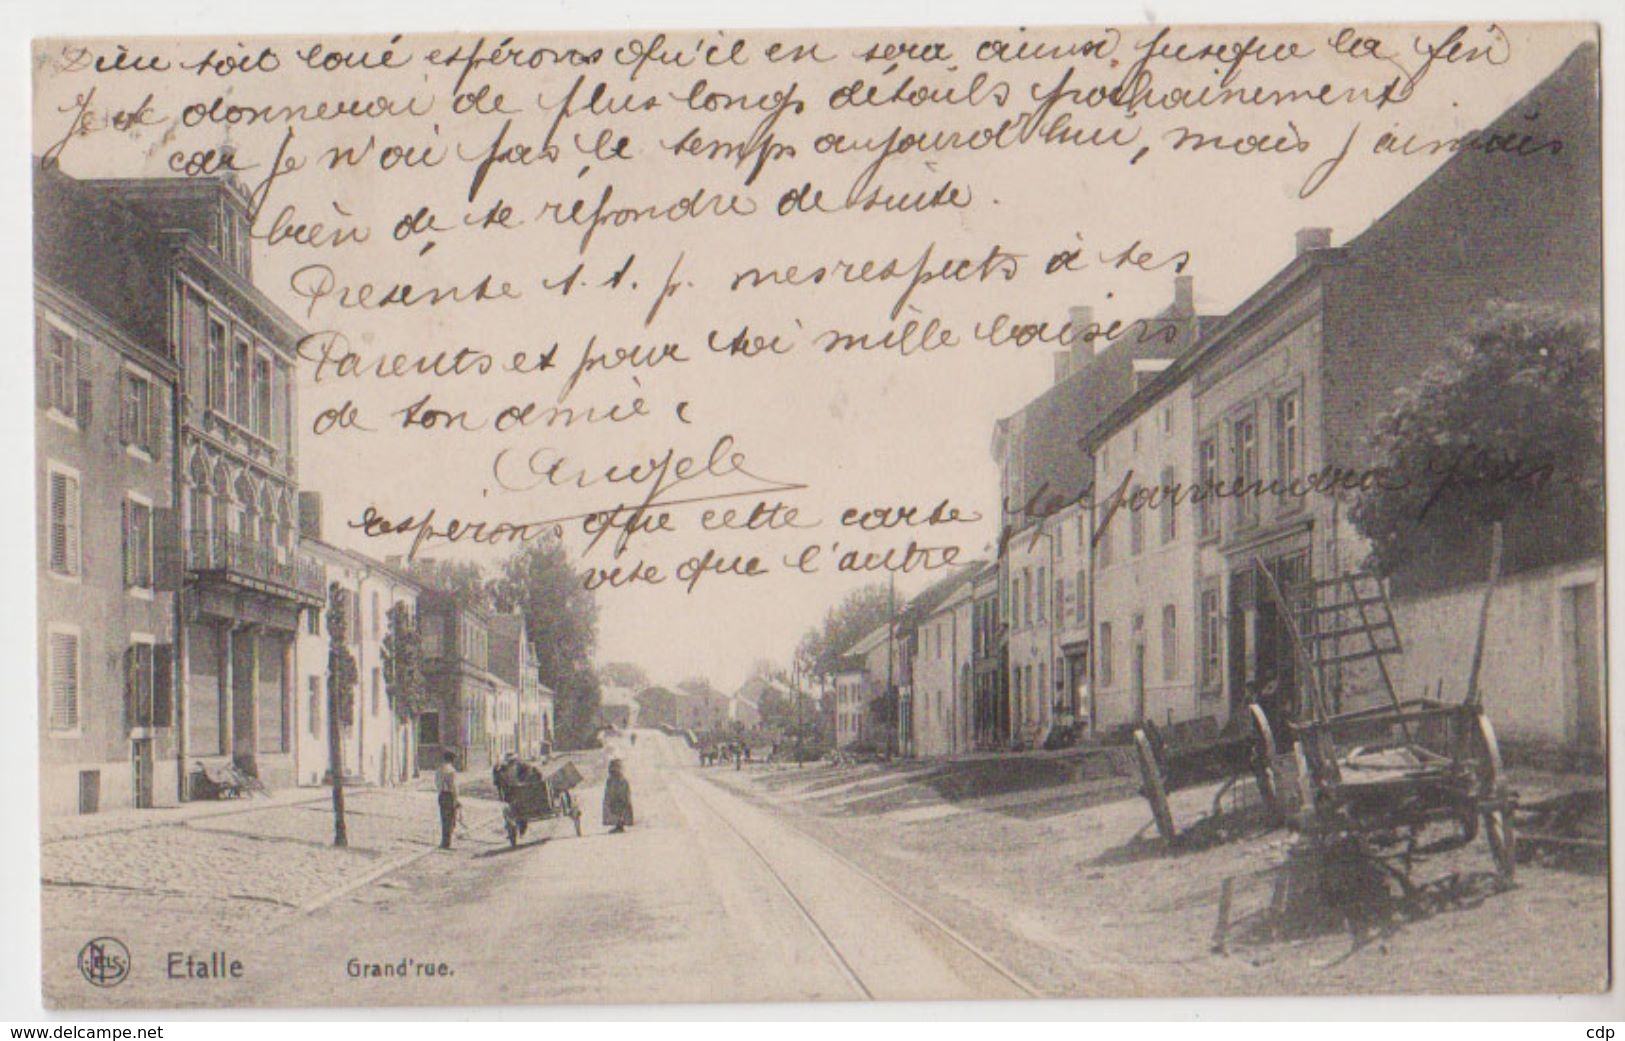 Dieu soit loué espérons qu'il en sera ainsi jusque la fin
Je te donnerai de plus longs détails prochainement
car je n'ai pas le temps aujourd'hui, mais j'aimais
bien de te répondre de suite.
Présente s.t.p. mes respects à tes
Parents et pour toi mille baisers
de ton amie,
Angele
espérons que cette carte te parviendra plus
vite que l'autre
NELS Etalle Grand'rue.
www.delcampe.net cdp